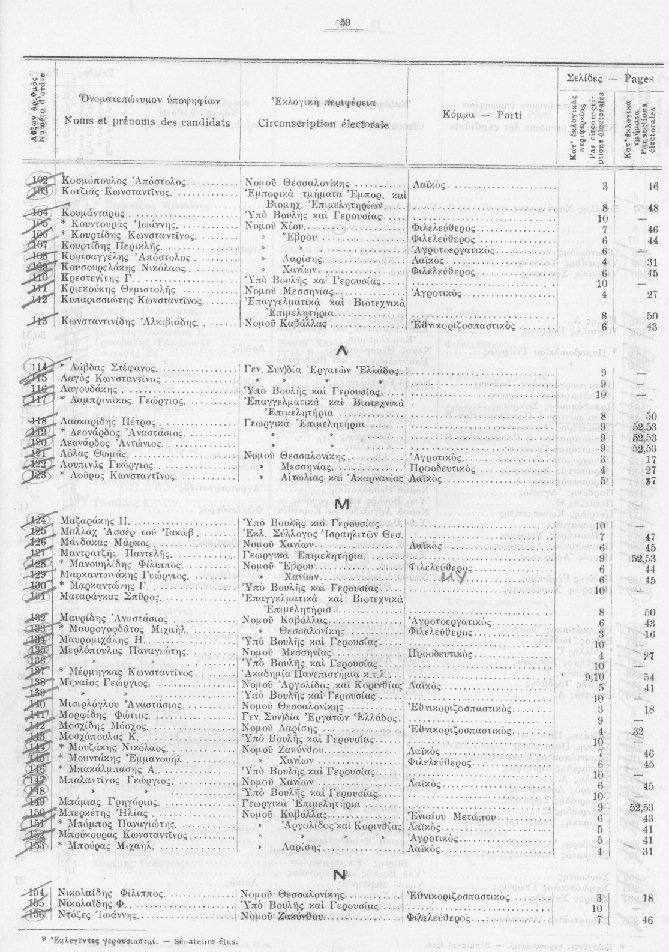 59
Αὔξων ἀριθμὸς Numéro d'ordre
Ὀνοματεπώνυμον ὑποψηφίων
Noms et prénoms des candidats
Ἐκλογικὴ περιφέρεια
Circonscription électorale
Κόμμα — Parti
Σελίδες — Pages
Κατ' ἐκλογικὰς περιφερείας Par circonscriptions électorales
Κατ' ἐκλογικὰ τμήματα Par sections électorales
102 Κοσμόπουλος Ἀπόστολος Νομοῦ Θεσσαλονίκης Λαϊκὸς 3 16
103 Κοτζιᾶς Κωνσταντῖνος Ἐμπορικὰ τμήματα Ἐμπορ. καὶ
Βιομηχ. Ἐπιμελητηρίων 8 48
104 Κουμάνταρος Ὑπὸ Βουλῆς καὶ Γερουσίας 10 —
105 * Κουντουρᾶς Ἰωάννης Νομοῦ Χίου Φιλελεύθερος 7 46
106 * Κουρτίδης Κωνσταντῖνος » Ἕβρου Φιλελεύθερος 6 44
107 Κουρτίδης Περικλῆς » » Ἀγροτοεργατικὸς 6
108 Κουτσαγγέλης Ἀπόστολος » Λαρίσης Λαϊκὸς 4 31
109 Κουτσουρελάκης Νικόλαος » Χανίων Φιλελεύθερος 6 45
110 Κρεστενίτης Γ. Ὑπὸ Βουλῆς καὶ Γερουσίας 10 —
111 Κριεκούκης Θεμιστοκλῆς Νομοῦ Μεσσηνίας Ἀγροτικὸς 4 27
112 Κυπαρισσιώτης Κωνσταντῖνος Ἐπαγγελματικὰ καὶ Βιοτεχνικὰ
Ἐπιμελητήρια 8 50
113 Κωνσταντινίδης Ἀλκιβιάδης Νομοῦ Καβάλλας Ἐθνικοριζοσπαστικὸς 6 43
Λ
114 * Λάβδας Στέφανος Γεν. Συν)δία Ἐργατῶν Ἑλλάδος 9 —
115 Λαγὸς Κωνσταντῖνος » » » » 9 —
116 Λαγουδάκης Ὑπὸ Βουλῆς καὶ Γερουσίας 10 —
117 * Λαμπρινάκος Γεώργιος Ἐπαγγελματικὰ καὶ Βιοτεχνικὰ
Ἐπιμελητήρια 8 50
118 Λασκαρίδης Πέτρος Γεωργικὰ Ἐπιμελητήρια 9 52,53
119 * Λεονάρδος Ἀναστάσιος » » 9 52,53
120 Λεονάρδος Ἀντώνιος » » 9 52,53
121 Λόλας Θωμᾶς Νομοῦ Θεσσαλονίκης Ἀγροτικὸς 3 17
122 Λουπινᾶς Γεώργιος » Μεσσηνίας Προοδευτικὸς 4 27
123 * Λοῦρος Κωνσταντῖνος » Αἰτωλίας καὶ Ἀκαρνανίας Λαϊκὸς 5 37
Μ
124 Μαζαράκης Π. Ὑπὸ Βουλῆς καὶ Γερουσίας 10 —
125 Μαλλὰχ Ἀσσὲρ τοῦ Ἰακωβ Ἐκλ. Σύλλογος Ἰσραηλιτῶν Θεσ. 7 47
126 Μάνδακας Μάρκος Νομοῦ Χανίων Λαϊκὸς 6 45
127 Μαντρατζῆς Παντελῆς Γεωργικὰ Ἐπιμελητήρια 9 52,53
128 * Μανουηλίδης Φίλιππος Νομοῦ Ἕβρου Φιλελεύθερος 6 44
129 Μαρκαντωνάκης Γεώργιος » Χανίων 6 45
130 * Μαρκαντώνης Γ. Ὑπὸ Βουλῆς καὶ Γερουσίας 10 —
131 Ματαράγκας Σπῦρος Ἐπαγγελματικὰ καὶ Βιοτεχνικὰ
Ἐπιμελητήρια 8 50
132 Μαυρίδης Ἀναστάσιος Νομοῦ Καβάλλας Ἀγροτοεργατικὸς 6 43
133 * Μαυρογορδᾶτος Μιχαὴλ » Θεσσαλονίκης Φιλελεύθερος 3 16
134 Μαυρομιχάλης Π. Ὑπὸ Βουλῆς καὶ Γερουσίας 10 —
135 Μερλόπουλος Παναγιώτης Νομοῦ Μεσσηνίας Προοδευτικὸς 4 27
136 » » Ὑπὸ Βουλῆς καὶ Γερουσίας 10 —
137 * Μέρμηγκας Κωνσταντῖνος Ἀκαδημία Πανεπιστήμια κ.τ.λ. 9,10 54
138 Μήναιος Γεώργιος Νομοῦ Ἀργολίδος καὶ Κορινθίας Λαϊκὸς 5 41
139 » » Ὑπὸ Βουλῆς καὶ Γερουσίας 10 —
140 Μισιρλόγλου Ἀναστάσιος Νομοῦ Θεσσαλονίκης Ἐθνικοριζοσπαστικὸς 3 18
141 Μορφίδης Φώτιος Γεν. Συν)δία Ἐργατῶν Ἑλλάδος 9 —
142 Μοσχίδης Μόσχος Νομοῦ Λαρίσης Ἐθνικοριζοσπαστικὸς 4 32
143 Μοσχόπουλος Κ. Ὑπὸ Βουλῆς καὶ Γερουσίας 10
144 * Μουζάκης Νικόλαος Νομοῦ Ζακύνθου Λαϊκὸς 7 46
145 * Μουντάκης Ἐμμανουὴλ » Χανίων Φιλελεύθερος 6 45
146 * Μπακάλμπασης Α. Ὑπὸ Βουλῆς καὶ Γερουσίας 10 —
147 Μπαλαντῖνος Γεώργιος Νομοῦ Χανίων Λαϊκὸς 6 45
148 » » Ὑπὸ Βουλῆς καὶ Γερουσίας 10 —
149 Μπάμιας Γρηγόριος Γεωργικὰ Ἐπιμελητήρια 9 52,53
150 Μπερκέτης Ἠλίας Νομοῦ Καβάλλας Ἑνιαίου Μετώπου 6 43
151 * Μπόμπος Παναγιώτης » Ἀργολίδος καὶ Κορινθίας Λαϊκὸς 5 41
152 Μπούκουρας Κωνσταντῖνος » » » Ἀγροτικὸς 5 41
153 * Μπούρας Μιχαὴλ » Λαρίσης Λαϊκὸς 4 31
Ν
154 Νικολαΐδης Φίλιππος Νομοῦ Θεσσαλονίκης Ἐθνικοριζοσπαστικὸς 3 18
155 Νικολαΐδης Φ. Ὑπὸ Βουλῆς καὶ Γερουσίας 10 —
156 Ντόζες Ἰωάννης Νομοῦ Ζακύνθου Φιλελεύθερος 7 46
* Ἐκλεγέντες γερουσιασταί. — Sénateurs élus.